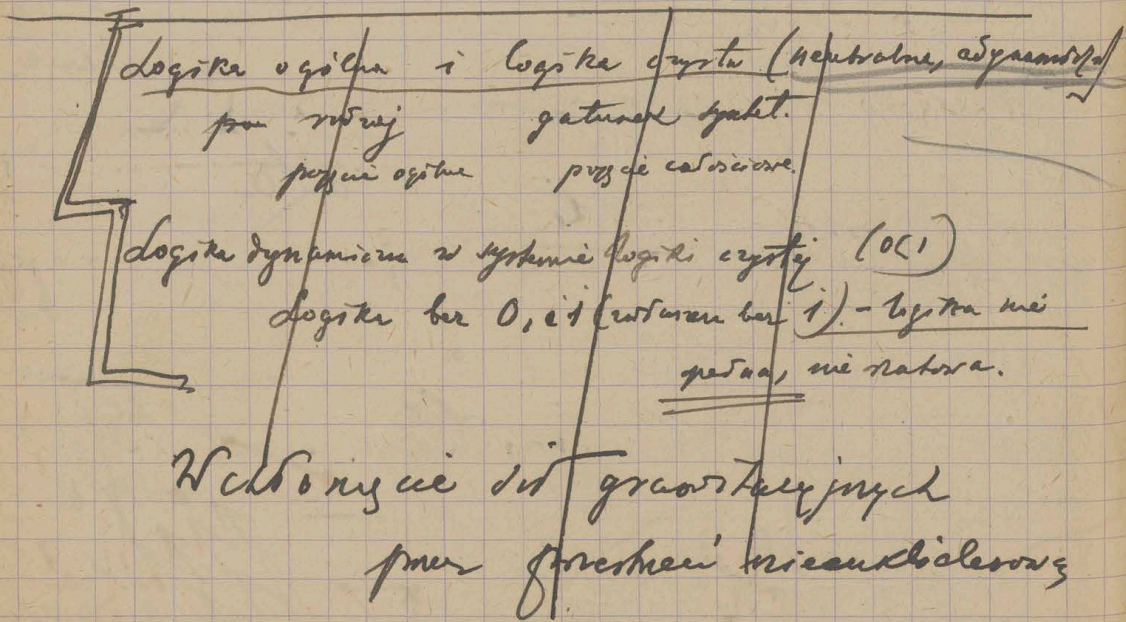 Logika ogólna i logika czysta (neutralna, adynamiczna)
rodzaj gatunek syntet.
pojęcie ogólne pojęcie całościowe.
Logika dynamiczna w systemie logiki czystej (0<1)
Logika bez 0, i 1 (zwłaszcza bez 1) - logika nie
pełna, nie
Wchłonięcie sił grawitacyjnych
przez przestrzeń nieeuklidesową